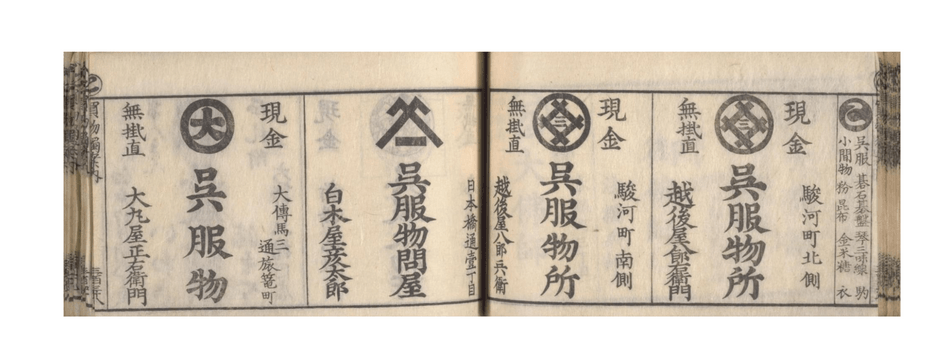 呉服 碁石碁盤 琴三味線
小間物 粉 昆布 金米糖 衣
駿河町北側
現金
呉服物所
無掛直
越後屋八郎右衛門
駿河町南側
現金
呉服物所
無掛直
越後屋八郎兵衛
日本橋通壹丁目
呉服物問屋
白木屋彦太郎
大傳馬三
通旅篭町
現金
大
呉服物
無掛直
大丸屋正右衛門
買物獨案内